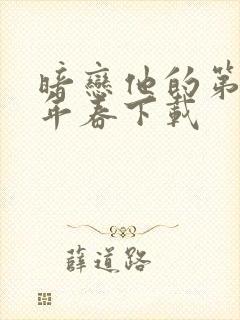 暗戀他的第
年春下載
薛道路